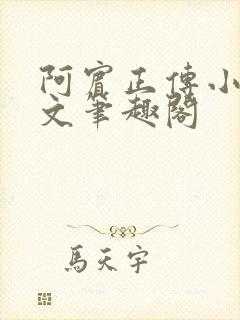 阿賓正傳小
文筆趣閣
馬天宇